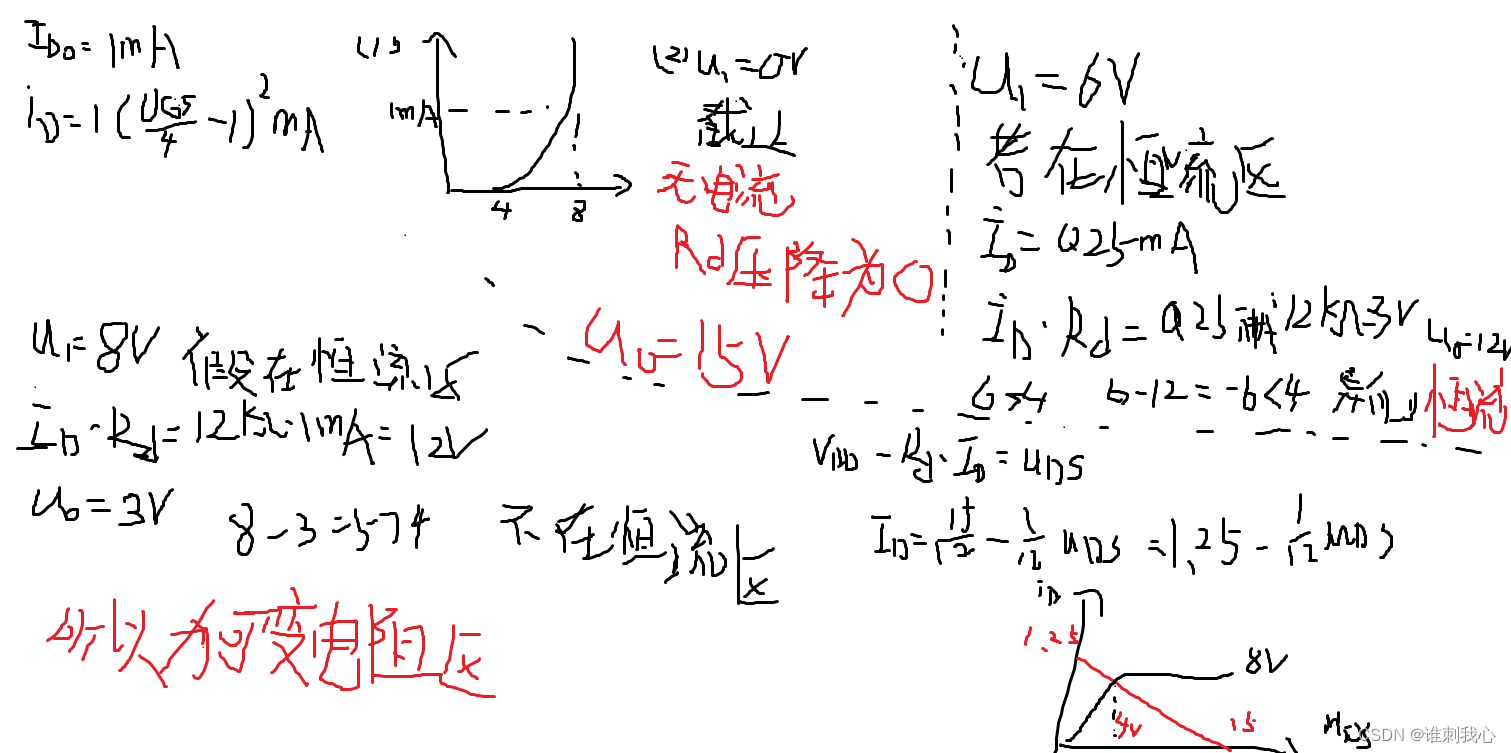 I_{D0} = 1mA
i_D = 1(\frac{U_{GS}}{4} - 1)^2 mA
(1)
1mA
4
8
(2) u_1 = 0V
截止
无电流
Rd压降为0
u_0 = 15V
u_1 = 6V
若在恒流区
i_D = 0.25mA
i_D · R_d = 0.25mA 12kΩ=3V u_0=12V
6>4 6-12=-6<4 恒流
u_1 = 8V 假设在恒流区
i_D · R_d = 12kΩ · 1mA = 12V
u_0 = 3V 8-3=5>4 不在恒流区
所以为可变电阻区
V_{DD} - R_d · i_D = u_{DS}
i_D = \frac{15}{12} - \frac{1}{12} u_{DS} = 1.25 - \frac{1}{12} u_{DS}
i_D
1.25
8V
4V
15
u_{DS}
CSDN @谁刺我心